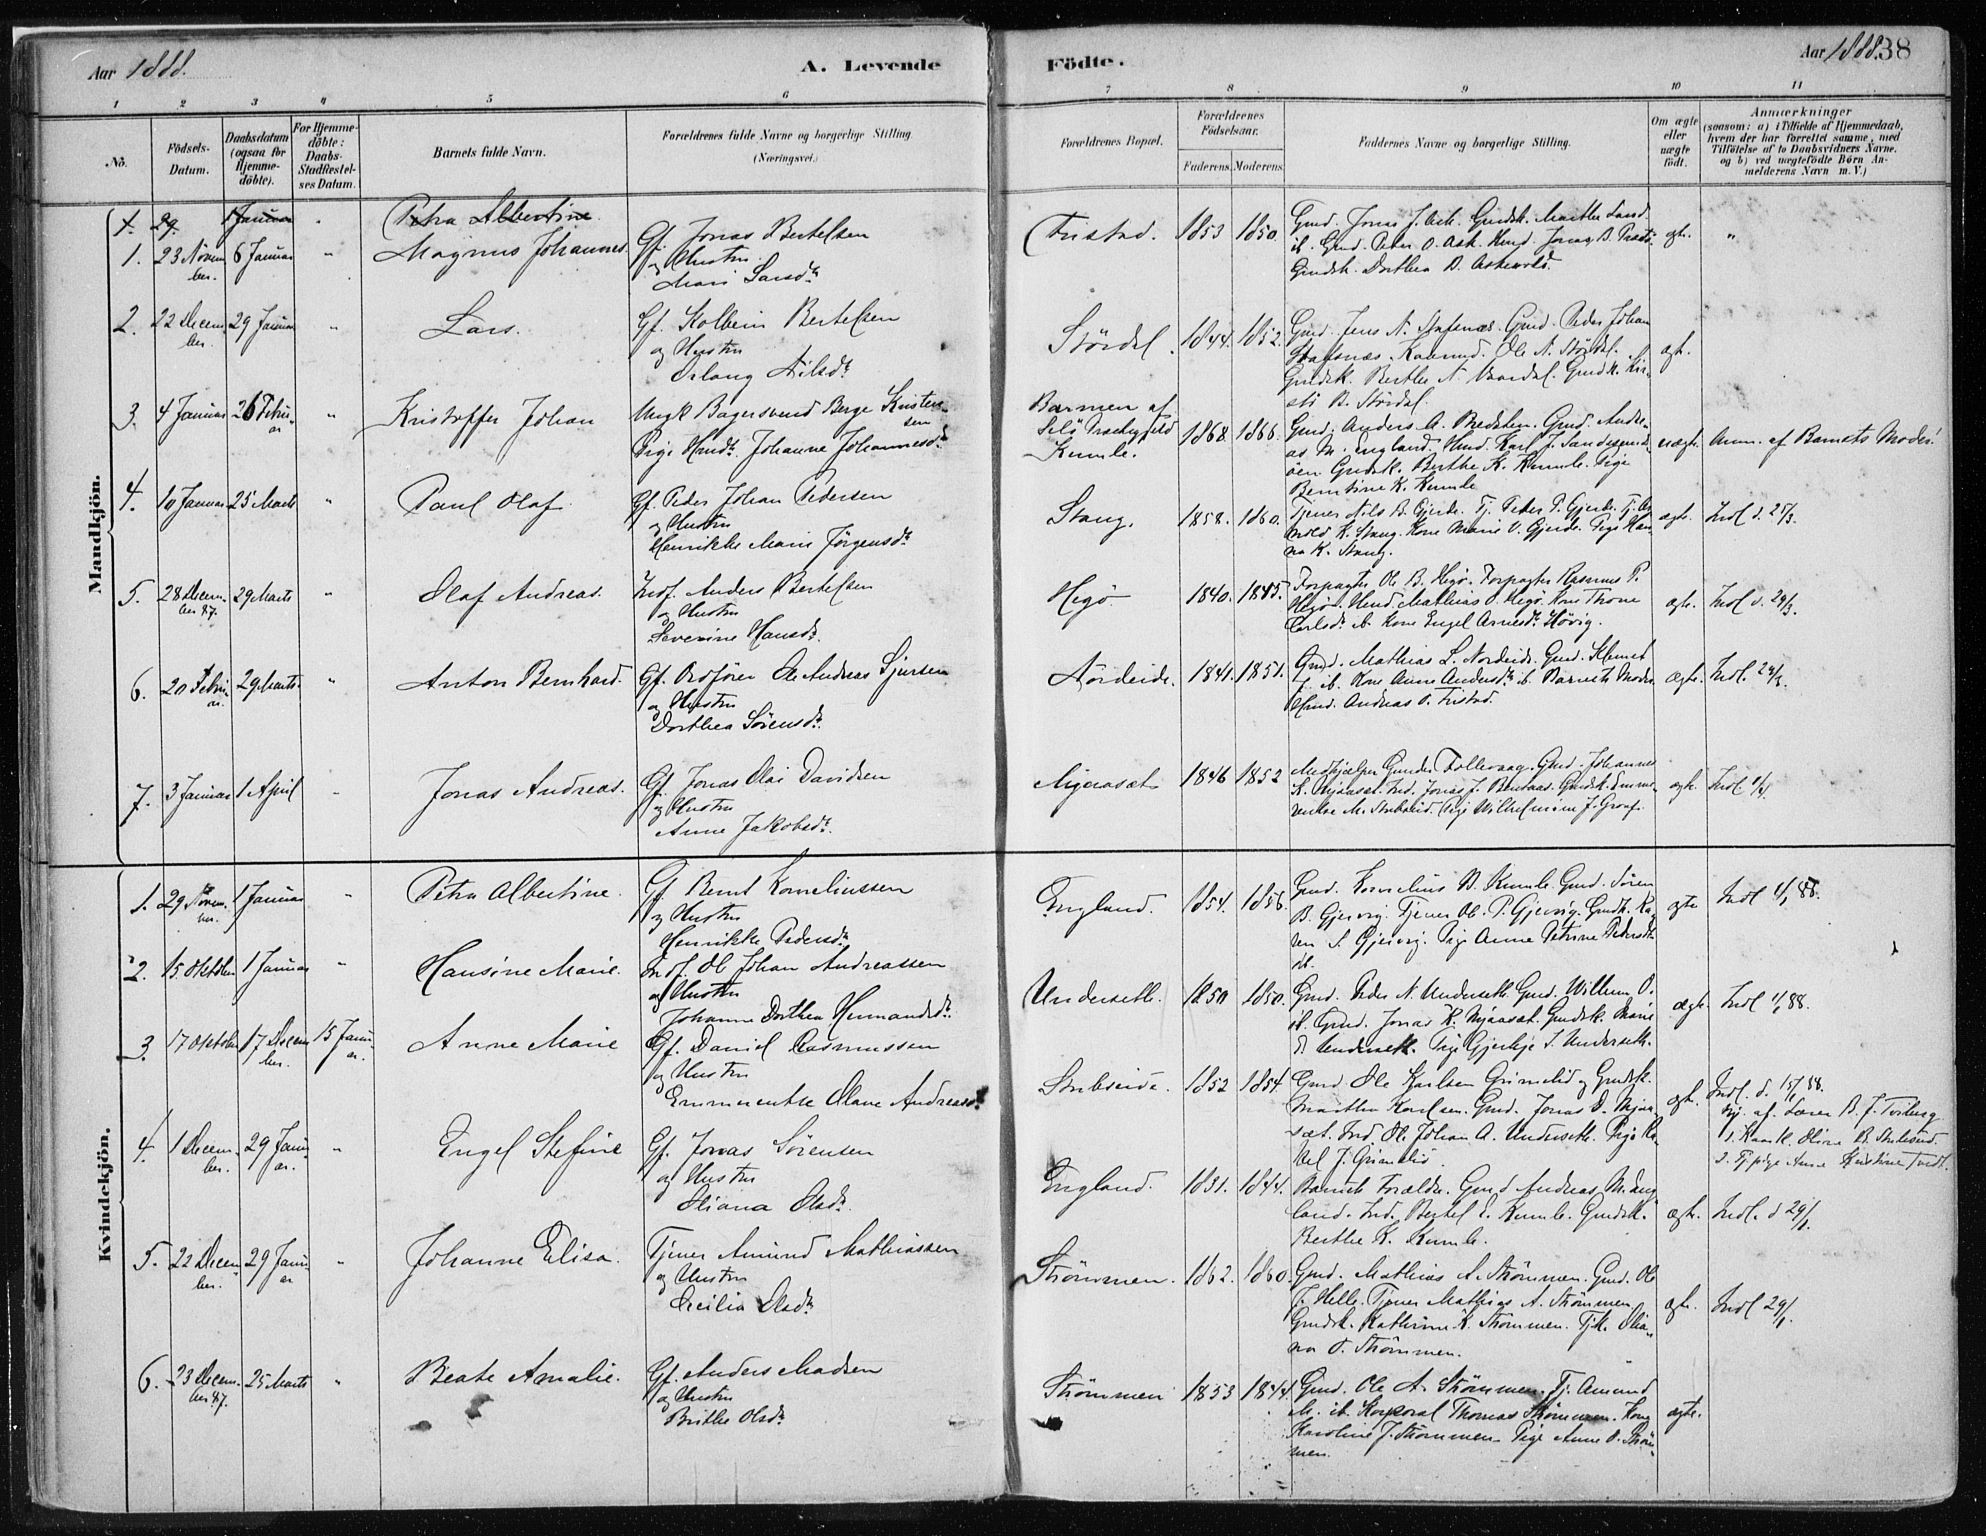 Aar 1888.
A. Levende
Födte.
Aar 1888.
38
1 2 3 4 5 6 7 8 9 10 11
No.
Födsels-Datum.
Daabsdatum (ogsaa for Hjemme-döbte).
For Hjemme-döbte: Daabs-Stadfæstel-ses Datum.
Barnets fulde Navn.
Forældrenes fulde Navne og borgerlige Stilling. (Næringsvei.)
Forældrenes Bopæl.
Forældrenes Födselsaar.
Faderens. Moderens.
Faddernes Navne og borgerlige Stilling.
Om ægte eller uægte født.
Anmærkninger
(saasom: a) i Tilfælde af Hjemmedaab,
hvem der har forrettet samme, med
Tilföielse af to Daabsvidners Navne.
og b) ved uægtefödte Börn An-
melderens Navn m. V.)
Mandkjön.
1. 29. 1 Januar Petra Albertine.
1. 23 Novem ber. 6 Januar " Magnus Johannes. Gf. Jonas Bertelsen
og Hustru
Mari Larsdr.
Fristad. 1853 1850. Gmd. Jonas J. Ask. Gmdsk. Marthe Sand
ib. Gmd. Peder O. Ask. Ungk. Jonas B.
Gmdsk. Dorthea B. Askevold.
ægte. "
2. 22 Decem ber. 29 Januar " Lars. Gf. Kolbein Bertelsen
og Hustru
Nilsdr.
Stördal. 1844. 1852. Gmd. Jens N. Gmd. Peder Johan
Ole N. Stördal.
Gmdsk. Berthe N. Gmdsk. Kir-
sti B. Stördal.
ægte.
3. 4 Januar 26 Febru ar " Kristoffer Johan Ungk Bagersvend Berge Kristen-
sen
Pige Johanne Johannesdr.
Barmen af
Selö
Kumle.
1868. 1866. Gmd. Anders A. Bredsten. Gmd. Andre-
as M. England. Karl J.
Gmdsk. Berthe K. Kumle. Pige
Berntine K. Kumle
uægte. Anm. af Barnets Moder.
4. 10 Januar 25 Marts " Paul Olaf. Gf. Peder Johan Pedersen
og Hustru
Henrikke Marie Jörgensdr.
Stang. 1858. 1860. Tjener Nils B. Gjerde. Tj. Peder P. Gjerde. Tj.
K. Stang. Kone Marie V. Gjerde. Pige Han-
na K. Stang.
ægte. Indl. d. 25/3.
5. 28 Decem ber 87. 29 Marts " Olaf Andreas. Inds. Anders Bertelsen
og Hustru
Severine Hansdr.
Hegö. 1840. 1845. Forpagter Ole B. Hegö. Forpagter Rasmus P.
Hegö. Mathias O. Hegö. Kone Thone
Carlsdr. ib. Kone Engel Arnesdr. Hövig.
ægte. Indl d. 29/3.
6. 20 Febru ar. 29 Marts. " Anton Bernhard. Gf. Ordförer Ole Andreas Sjursen
og Hustru
Dorthea Sörensdr.
Nördeide. 1841. 1851. Gmd. Mathias L. Nordeide. Gmd. Klemet
J. ib. Kone Anne Andersdr. ib. Barnets Moder
Andreas O. Fristad.
ægte. Indl. 29/3.
7. 3 Januar 1 April Jonas Andreas. Gf. Jonas Olai Davidsen
og Hustru
Anne Jakobsdr.
Mjaasæt 1846 1852 Medhjælper Gunder Folkevaag. Gmd. Johannes
K. Mjaasæt. Inds. Jonas J. Gmdsk. Emme-
rentse M. Stubseid. Pige Wilhelmine J. Grov.
ægte. Indl. 1/4.
Kvindekjön.
1. 29 Novem ber. 1 Januar " Petra Albertine. Gf. Bernt Korneliussen
og Hustru
Henrikke Pedersdr.
England. 1854. 1856. Gmd. Kornelius B. Kumle. Gmd. Sören
B. Gjervig. Tjener Ole P. Gjervig. Gmdsk. Ka-
ren S. Gjervig. Pige Anne Petrine Pedersdr.
ib.
ægte Indl 1/1 88.
2. 15 Oktober 1 Januar " Hansine Marie. Inds. Ole Johan Andreassen
og Hustru
Johanne Dorthea Hermandsdr.
Underseth. 1850 1850. Gmd. Peder N. Underseth. Gmd. Wilhelm O.
ib. Gmd. Jonas K. Mjaasæt. Gmdsk. Marie
Underseth. Pige Gjertje J. Underseth.
ægte Indl 1/1 88.
3. 17 Oktober 17 Decem ber. 15 Janu ar. Anne Marie Gf. Daniel Rasmussen
og Hustru
Emmerentse Olave Andreasdr.
Stubseide. 1852 1854. Gmd. Ole Karlsen Grimelid og Gmdsk.
Marthe Karlsen. Gmd. Jonas D. Mjaa-
sæt. Inds. Ole Johan A. Underseth. Pige Ra-
kel J. Grimelid.
ægte. Indl. d. 15/1 88.
Hj. af Lærer B. J. Tviberg
1. Olive B. Stubseid.
2. Tjpige Anne Kristine Tvedt.
4. 1 Decem ber. 29 Janu ar. " Engel Stefine Gf. Jonas Sörensen
og Hustru
Oliana Olsdr.
England. 1831. 1844. Barnets Forældre. Gmd Andreas M. Eng-
land. Inds. Bertel E. Kumle. Gmdsk.
Berthe K. Kumle.
ægte. Indl. d 29/1.
5. 22 Decem ber. 29 Janu ar " Johanne Elisa. Tjener Amund Mathiassen
og Hustru
Cecilia Olsdr.
Strömmen. 1862. 1860. Gmd. Mathias A. Strömmen. Gmd. Ole
J. Helle. Tjener Mathias A. Strömmen
Gmdsk. Kathrine K. Strömmen. Tjk. Olia-
na O. Strömmen.
ægte. Indl 29/1.
6. 23 Decem ber 87. 25 Marts " Beate Amalie. Gf. Anders Madsen
og Hustru
Brithe Olsdr.
Strömmen 1853 1844. Gmd. Ole A. Strömmen. Tj. Amund
M. ib. Korporal Thomas Strömmen. Kone
Karoline J. Strömmen. Pige Anne O. Ström-
men.
ægte.